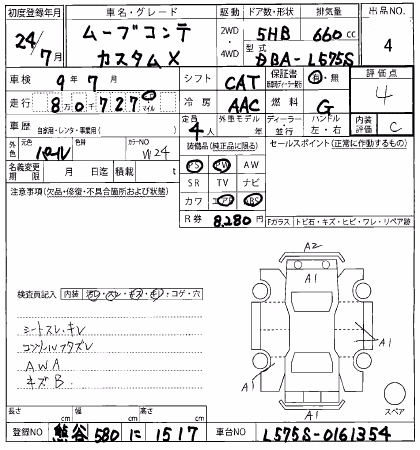 初度登録年月 車名・グレード 駆動 ドア数・形状 排気量 出品NO.
24/7月 ムーブコンテ カスタムX 2WD・4WD 5HB 660cc 4
型式 DBA-L575S
車検 9年7月 シフト CAT 保証書 有・無 評価点 4
走行 8万0千727 km マイル 冷房 AAC 燃料 G
車歴 自家用・レンタ・事業用( ) 定員 4人 外車モデル 年 ディーラー・並行 ハンドル 左・右 内装評価 C
外色 元色 パール 色替 カラーNO W24 装備品(純正品に限る) セールスポイント(正常に作動するもの)
名義変更期限 月 日迄 積載 t PS PW AW
SR TV ナビ
注意事項(欠品・修復・不具合箇所および状態) カワ エアB ABS
R券 8,280円 Fガラス トビ石・キズ・ヒビ・ワレ・リペア跡
A2
A1
検査員記入 内装 汚レ・スレ・キズ・キレ・コゲ・穴
シートスレ、キレ
A1
AWA
キズB
A
A1
スペア
長さ cm 幅 cm 高さ cm
登録NO 熊谷 580 に 1517 車台NO L575S-0161354